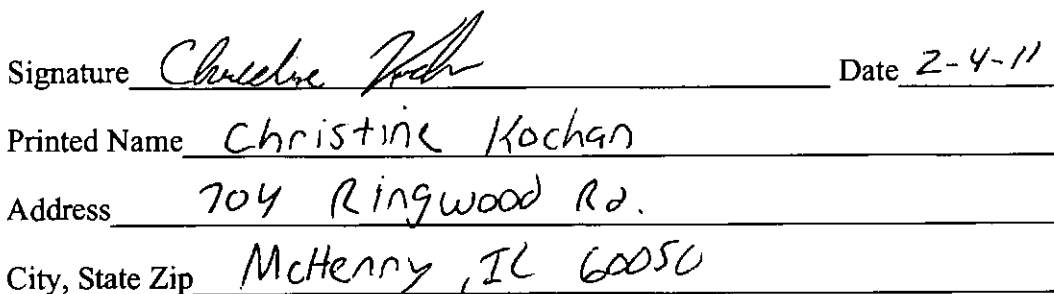 Signature Christine Kochan Date 2-4-11
Printed Name Christine Kochan
Address 704 Ringwood Rd.
City, State Zip McHenry, IL 60050